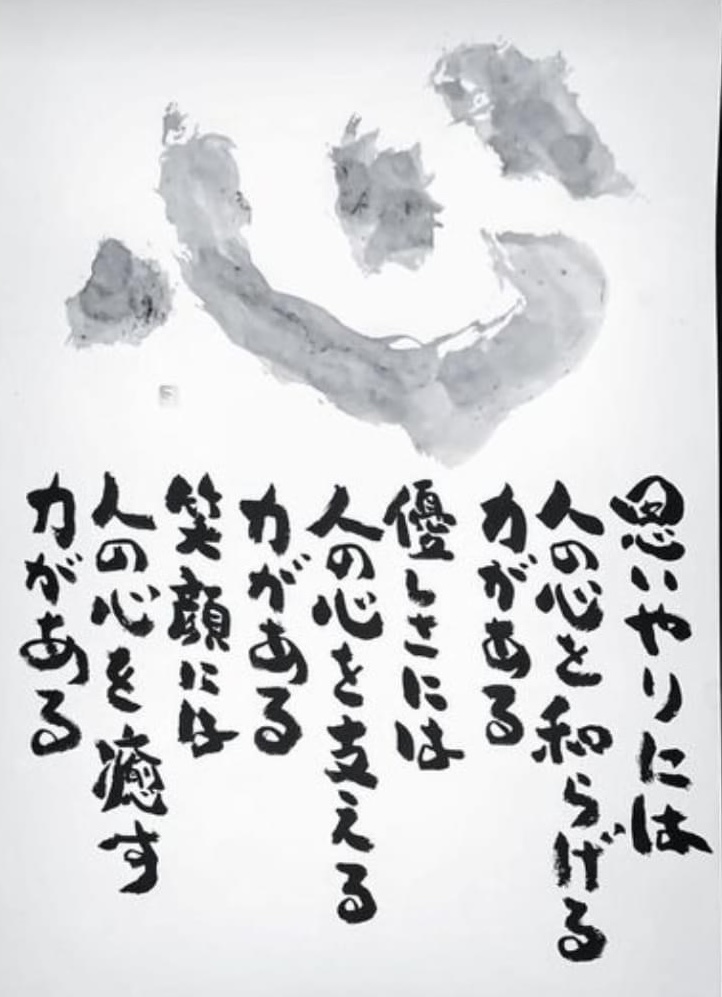 心
思いやりには
人の心を和らげる
力がある
優しさには
人の心を支える
力がある
笑顔には
人の心を癒す
力がある